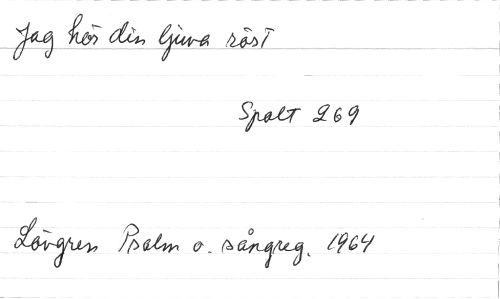 Jag hör din ljuva röst
Spalt 269
Lövgren Psalm o. sångreg. 1964